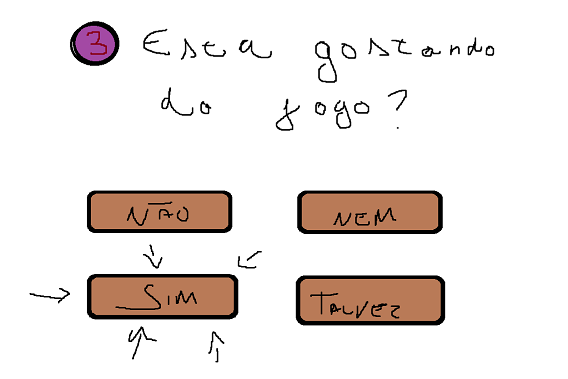 3 Esta gostando
do jogo?
NÃO NEM
SIM TALVEZ